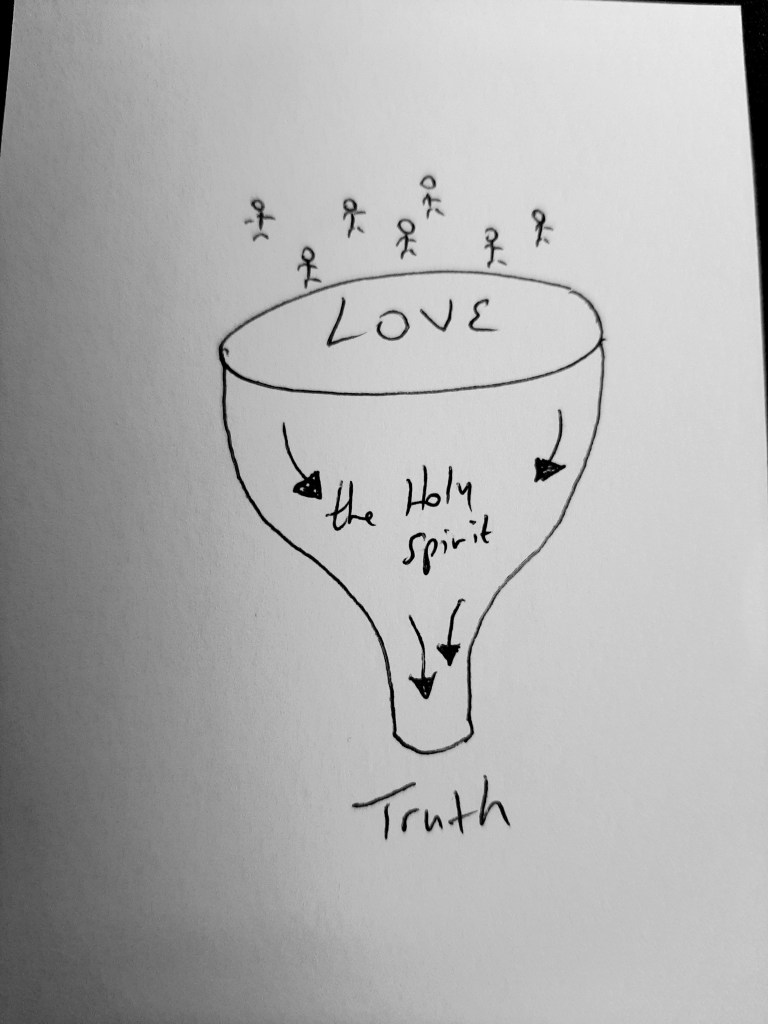 LOVE
the Holy
spirit
Truth